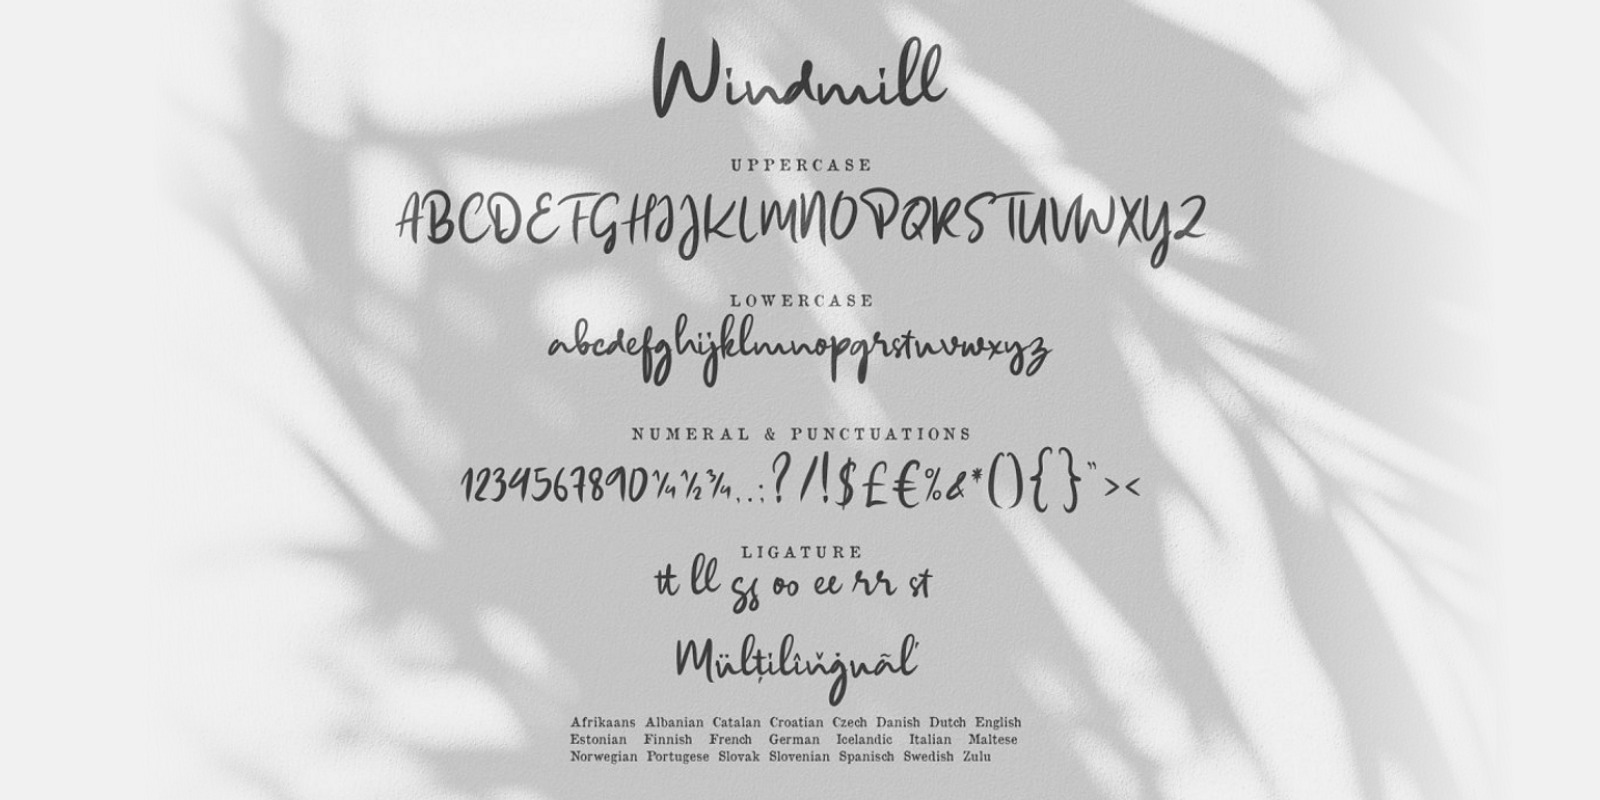 Windmill
UPPERCASE
ABCDEFGHIJKLMNOPQRSTUVWXYZ
LOWERCASE
abcdefghijklmnopqrstuvwxyz
NUMERAL & PUNCTUATIONS
1234567890¼½¾,.:;?/!$£€%&*(){}"><
LIGATURE
tt ll ss oo ee rr st
Mülţilîňġuãľ
Afrikaans Albanian Catalan Croatian Czech Danish Dutch English
Estonian Finnish French German Icelandic Italian Maltese
Norwegian Portugese Slovak Slovenian Spanisch Swedish Zulu